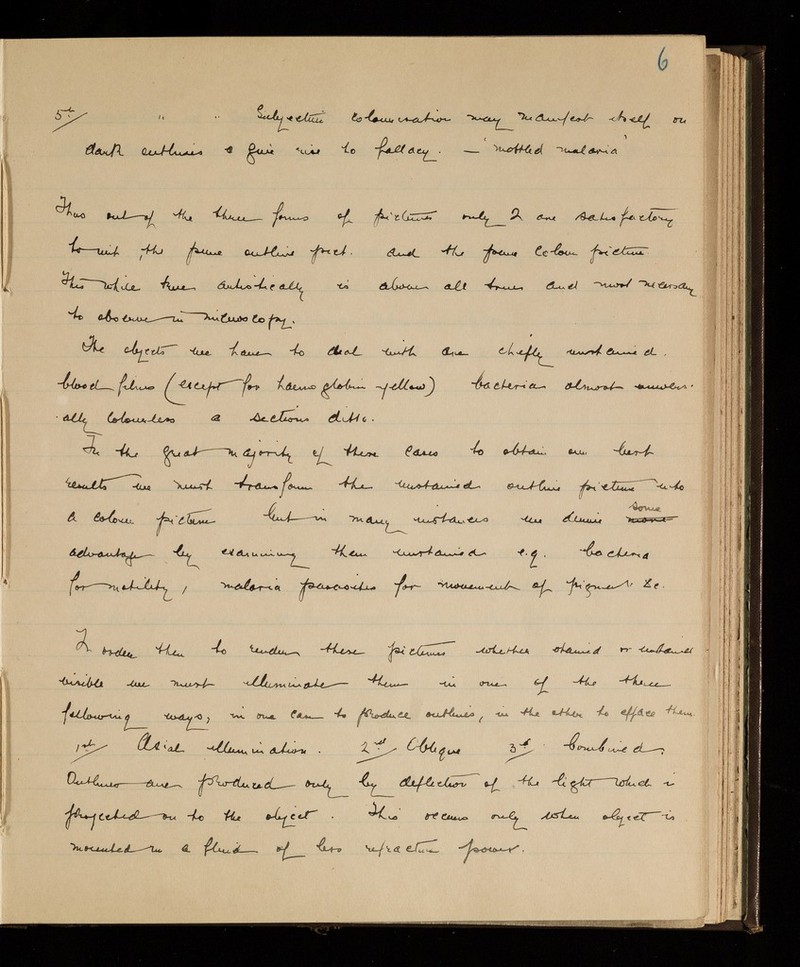 6
5th/ " " Subjective Colouration may manifest itself on
dark outlines & give rise to fallacy. — 'mottled malaria'
Thus out of the three forms of pictures only 2 are satisfactory
to wit the pure outline pict. and the pure Colour picture.
This while true artistically is above all true and most necessary
to observe in microscopy.
The objects we have to deal with are chiefly unstained.
blood films (except for haemoglobin yellow) bacteria almost univers-
ally Colourless & sections ditto.
In the great majority of these cases to obtain our best
results we must transform the unstained outline picture into
a colour picture but in many instances we derive some
advantage by examining them unstained e.g. bacteria
for motility, malaria parasites for movement of pigment &c.
In order then to render these pictures whether stained or unstained
visible we must illuminate them in one of the three
following ways, in one case to produce outlines, in the other to efface them
1st/ Axial illumination. 2nd/ Oblique 3d/ Combined
Outlines are produced only by deflection of the light which is
projected on to the object. This occurs only when object is
mounted in a fluid of less refractive power.